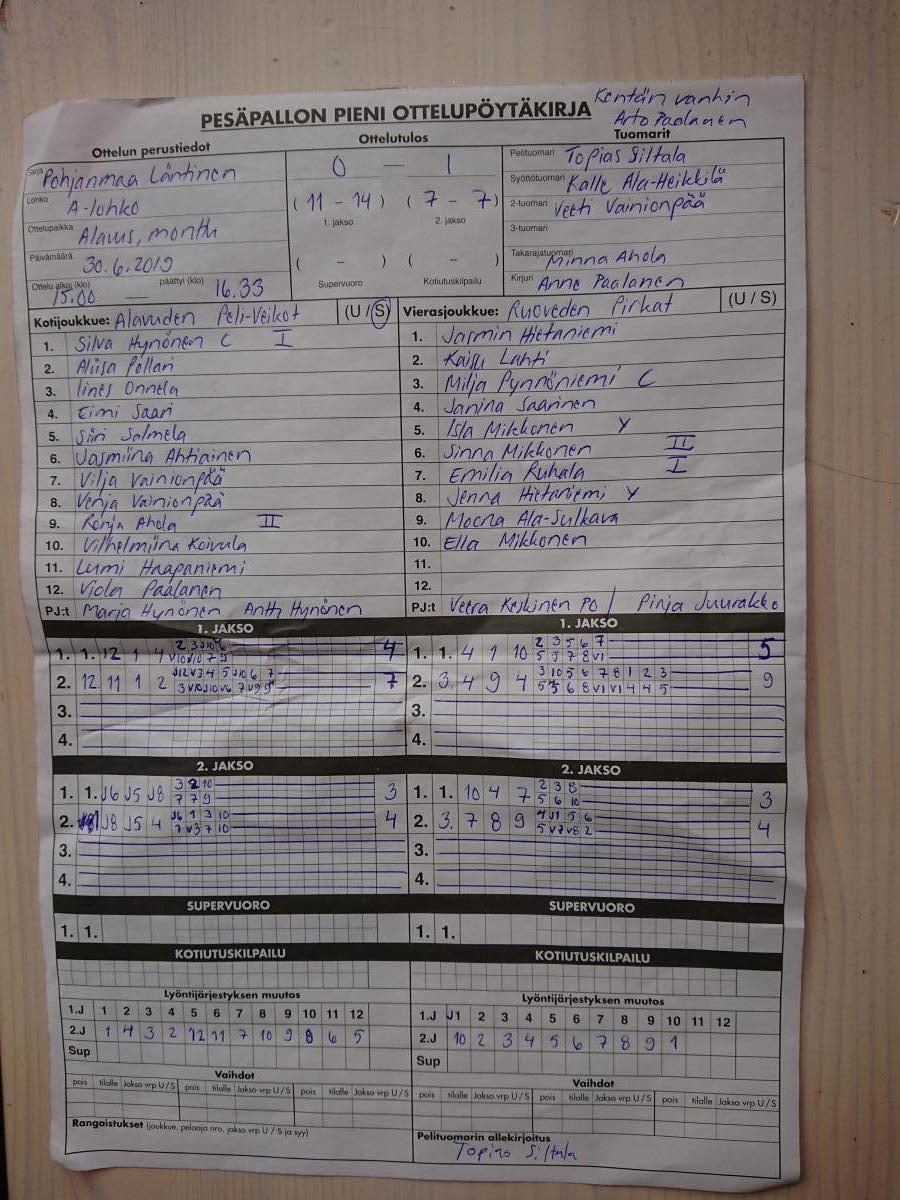 Kentän vanhin
PESÄPALLON PIENI OTTELUPÖYTÄKIRJA
Arto Paalanen
Ottelun perustiedot
Ottelutulos
Tuomarit
Sarja Pohjanmaa Läntinen
0 — 1
Pelituomari Topias Siltala
Lohko A-lohko
(11 - 14) (7 - 7)
1. jakso 2. jakso
Syöttötuomari Kalle Ala-Heikkilä
2-tuomari Veeti Vainionpää
Ottelupaikka Alavus,
3-tuomari
Päivämäärä 30.6.2019
( - ) ( - )
Supervuoro Kotiutuskilpailu
Takarajatuomari Minna Ahola
Ottelu alkoi (klo) 15.00 — päättyi (klo) 16.33
Kirjuri Anne Paalanen
Kotijoukkue: Alavuden Peli-Veikot (U / S)
Vierasjoukkue: Ruoveden Pirkat (U / S)
1. Silva Hynönen C I
2. Aliisa Pollari
3. Iines Onnela
4. Eimi Saari
5. Siiri Salmela
6. Jasmiina Ahtiainen
7. Vilja Vainionpää
8. Venja Vainionpää
9. Ronja Ahola II
10. Vilhelmiina Koivula
11. Lumi Haapaniemi
12. Viola Paalanen
PJ:t Marja Hynönen Antti Hynönen
1. Jasmin Hietaniemi
2. Kaisu Lahti
3. Milja Pynnöniemi C
4. Janina Saarinen
5. Isla Mikkonen Y
6. Sinna Mikkonen II
7. Emilia Ruhala I
8. Jenna Hietaniemi Y
9. Moona Ala-Sulkava
10. Ella Mikkonen
11.
12.
PJ:t Veera Keskinen PO / Pinja Juurakko
1. JAKSO
1. 1. 12 1 4 4
2. 12 11 1 2 7
3.
4.
1. JAKSO
1. 1. 4 1 10 2 3 5 6 7 5
5 5 7 8 V1
2. 3. 4 9 4 3 10 5 6 7 8 1 2 3 9
5 5 6 8 V1 V1 4 4 5
3.
4.
2. JAKSO
1. 1. J6 J5 J8 3 2 10 3
7 7 9
2. J8 J5 4 J6 1 3 10 4
7 V3 7 10
3.
4.
2. JAKSO
1. 1. 10 4 7 2 3 8 3
5 6 10
2. 3. 7 8 9 4 J1 5 6 4
5 V7 V8 2
3.
4.
SUPERVUORO
1. 1.
SUPERVUORO
1. 1.
KOTIUTUSKILPAILU
KOTIUTUSKILPAILU
Lyöntijärjestyksen muutos
1.J 1 2 3 4 5 6 7 8 9 10 11 12
2.J 1 4 3 2 12 11 7 10 9 8 6 5
Sup
Lyöntijärjestyksen muutos
1.J J1 2 3 4 5 6 7 8 9 10 11 12
2.J 10 2 3 4 5 6 7 8 9 1
Sup
Vaihdot
pois tilalle Jakso vrp U/S pois tilalle Jakso vrp U/S pois tilalle Jakso vrp U/S
Vaihdot
pois tilalle Jakso vrp U/S pois tilalle Jakso vrp U/S pois tilalle Jakso vrp U/S
Rangaistukset (joukkue, pelaaja nro, jakso vrp U / S ja syy)
Pelituomarin allekirjoitus
Topias Siltala